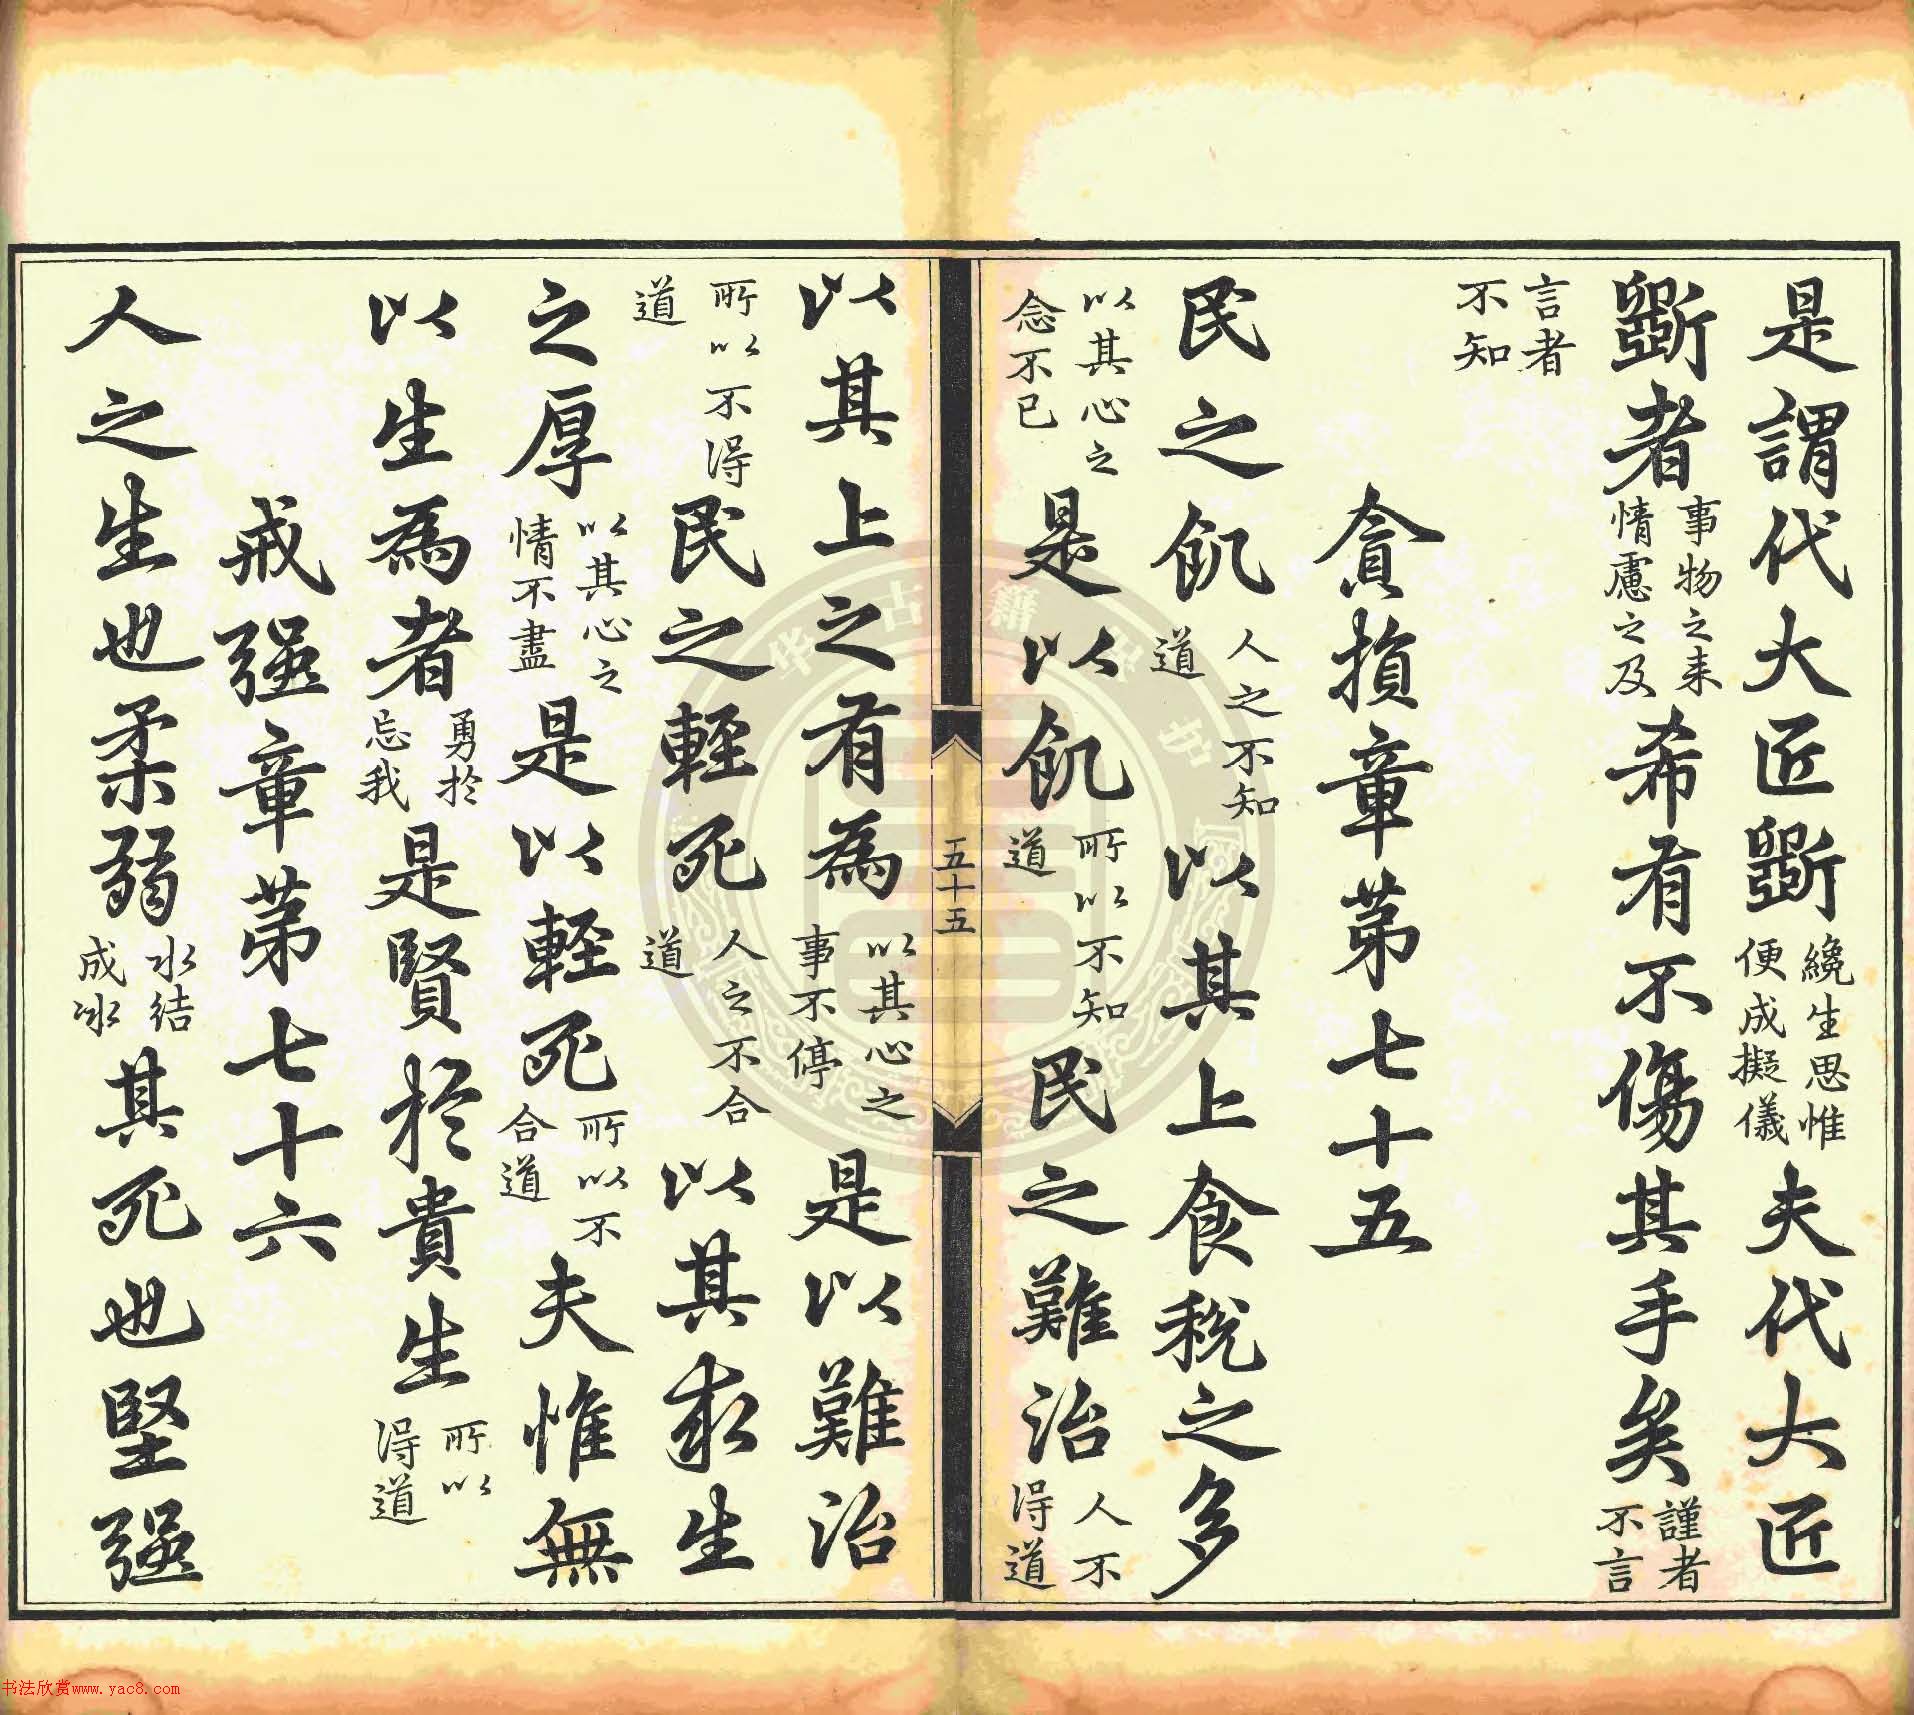 是謂代大匠斲纔生思惟便成擬儀夫代大匠
斲者事物之来情慮之及希有不傷其手矣謹者不言
言者不知
貪損章第七十五
民之飢人之不知道以其上食稅之多
以其心之念不已是以飢所以不知道民之難治人不得道
五十五
以其上之有為以其心之事不停是以難治
所以不得道民之輕死人之不合道以其求生
之厚以其心之情不盡是以輕死所以不合道夫惟無
以生為者勇於忘我是賢於貴生所以得道
戒强章第七十六
人之生也柔弱水結成冰其死也堅强
书法欣赏www.yac8.com